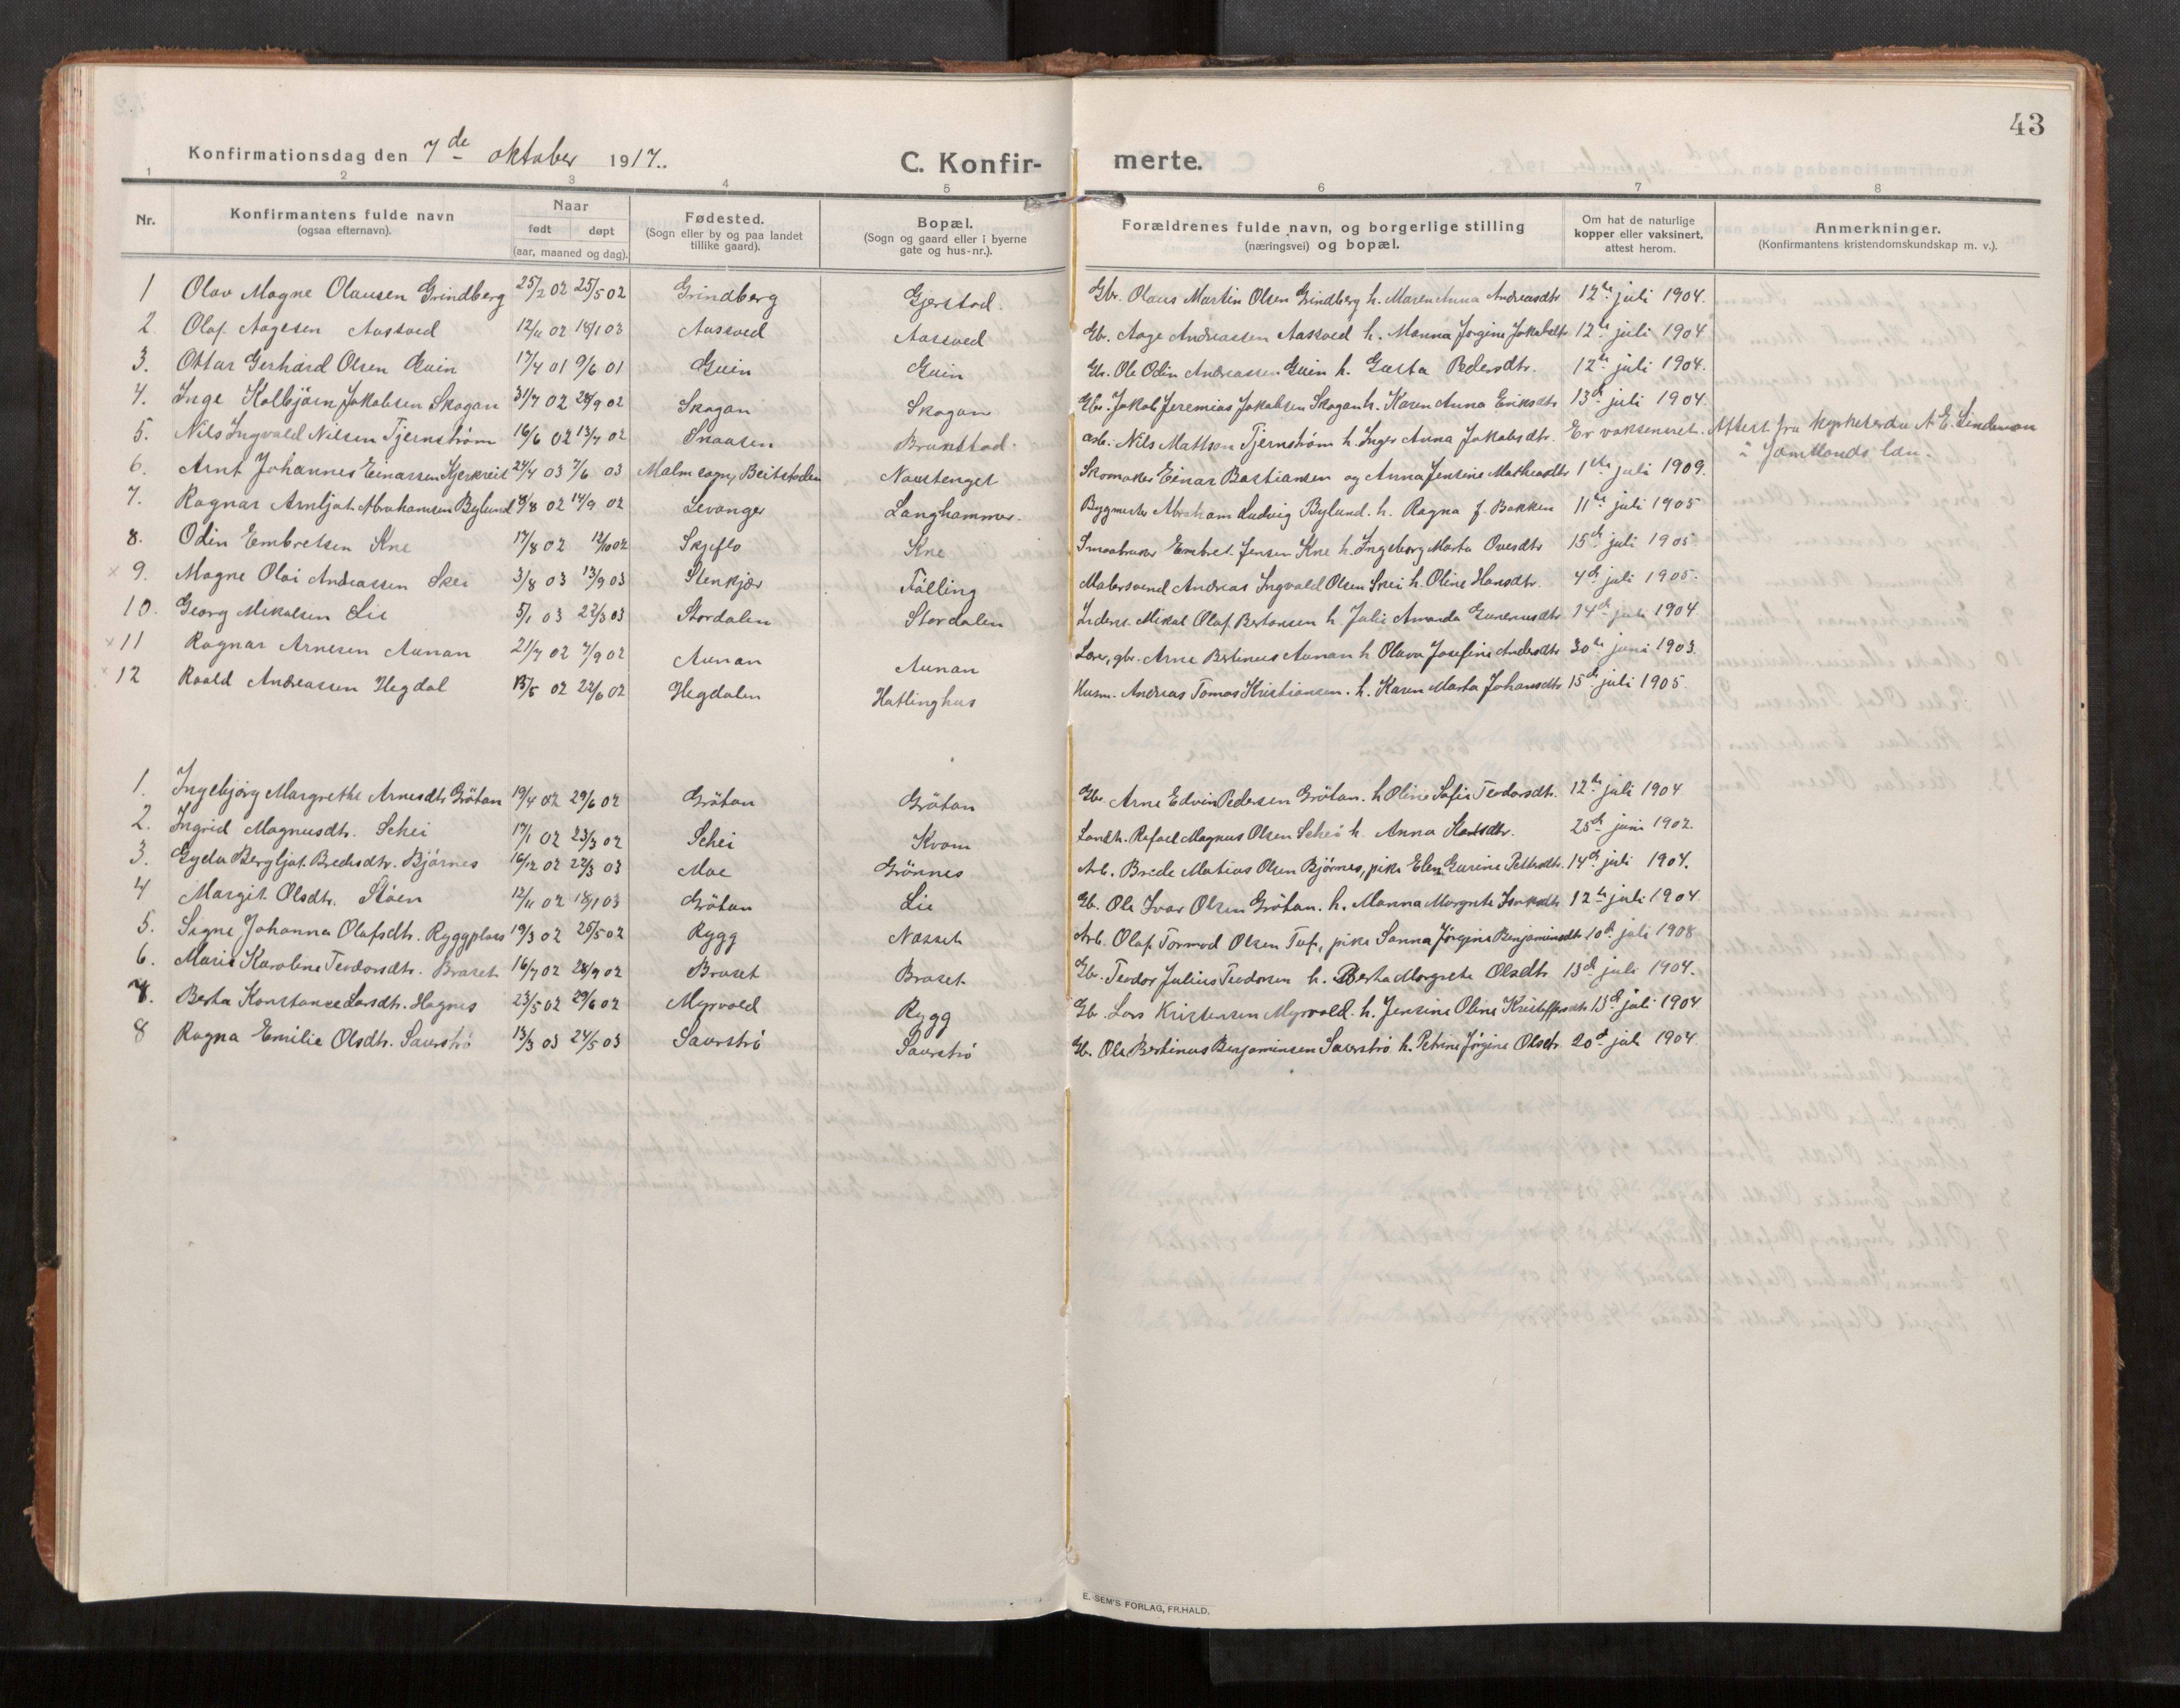 43
Konfirmationsdag den 7de oktober 1917.
C. Konfirmerte.
1 2 3 4 5 6 7 8
Nr.
Konfirmantens fulde navn (ogsaa efternavn).
Naar født døpt (aar, maaned og dag).
Fødested. (Sogn eller by og paa landet tillike gaard).
Bopæl. (Sogn og gaard eller i byerne gate og hus-nr.).
Forældrenes fulde navn, og borgerlige stilling (næringsvei) og bopæl.
Om hat de naturlige kopper eller vaksinert, attest herom.
Anmerkninger. (Konfirmantens kristendomskundskap m. v.).
1 Olav Magne Olausen Grindberg 25/2 02 25/5 02 Grindberg Gjerstad. Gbr. Olaus Martin Olsen Grindberg h. Maren Anna Andreasdtr 12te juli 1904.
2. Olaf Aagesen Aasved 12/11 02 18/1 03 Aasved Aasved Gb. Aage Andreassen Aasved h. Manna Jørgine Jakobsdtr 12te juli 1904
3. Ottar Gerhard Olsen Guin 17/4 01 9/6 01 Guin Guin Gb. Ole Odin Andreassen Guin h. Gusta Pedersdtr. 12te juli 1904.
4. Inge Kolbjörn Jakobsen Skogan 31/7 02 28/9 02 Skogan Skogan Gbr. Jakob Jeremias Jakobsen Skogan h. Karen Anna Eriksdtr 13de juli 1904.
5. Nils Ingvald Nilsen Tjernström 16/6 02 13/7 02 Snaasen Brunstad. arb. Nils Mattson Tjernström h. Inger Anna Jakobsdtr. Er vaksineret. Attest fra kyrkoherde A E. Lindeman i Jämtlands län.
6. Arnt Johannes Einarsen Kjerkreit 24/4 03 7/6 03 Malm sogn, Beitstaden Naustenget Skomaker Einar Bastiansen og Anna Jensine Matheasdtr 1ste juli 1909.
7. Ragnar Arnljot Abrahamsen Bylund 18/8 02 14/9 02 Levanger Langhammer. Bygmester Abraham Ludvig Bylund. h. Ragna f. Bakken 11te juli 1905
8. Odin Embretsen Kne 17/8 02 12/10 02 Skjeflo Kne Smaabruker Embret Jensen Kne h. Ingeborg Marta Ovesdtr 15de juli 1905.
× 9. Magne Olai Andreassen Skei 3/8 03 13/9 03 Stenkjær Fälling Malersvend Andreas Ingvald Olsen Skei h. Oline Hansdtr. 4de juli 1905.
10. Georg Mikalsen Lie 5/1 03 22/3 03 Stordalen Stordalen Inderst. Mikal Olaf Bertansen h. Julie Amanda Gunerusdtr 14de juli 1904.
× 11 Ragnar Arnesen Aunan 21/7 02 7/9 02 Aunan Aunan Lærer, gbr. Arne Bertinus Aunan h. Olava Josefine Andersdtr 30te juni 1903.
× 12 Roald Andreassen Hegdal 13/5 02 22/6 02 Hegdalen Hatlinghus Husm. Andreas Tomas Kristiansen. h. Karen Marta Johansdtr 15de juli 1905.
1. Ingebjørg Margrethe Arnesdtr Grötan 19/4 02 29/6 02 Grötan Grötan Gbr. Arne Edvin Pedersen Grötan. h. Oline Sofie Teodorsdtr. 12te juli 1904
2. Ingrid Magnusdtr. Schei 17/1 02 23/3 02 Schei Kvam Landh. Rafael Magnus Olsen Schei h. Anna 25de juni 1902.
3. Gyda Bergljot Bredesdtr. Bjørnes 16/12 02 22/3 03 Moe Grönnes Arb. Brede Matias Olsen Bjørnes, pike Elen Gurine Pettersdtr. 14de juli 1904.
4 Margit Olsdtr. Støen 12/11 02 18/1 03 Grötan Lie Gb. Ole Ivar Olsen Grötan. h. Manna Margrete Isaksdtr 12te juli 1904
5. Signe Johanna Olafsdtr. Ryggplass 19/3 02 25/5 02 Rygg Nasset Arb. Olaf Tormod Olsen Tuf., pike Sanna Jørgine Benjaminsdtr 10de juli 1908
6. Marie Karoline Teodorsdtr. Braset 16/7 02 28/9 02 Braset Braset Gb. Teodor Julius Teodorsen h. Berta Margrete Olsdtr. 13de juli 1904.
7. Berta Konstanse Larsdtr. Hognes 23/5 02 29/6 02 Myrvold Rygg Gb. Lars Kristensen Myrvold. h. Jensine Oline Kristoffersdtr 13de juli 1904
8 Ragna Emilie Olsdtr. Saurstrø 13/3 03 24/5 03 Saurstrø Saurstrø Gb. Ole Bertinus Benjaminsen Saurstrø h. Petrine Jørgine Olsdtr 20de juli 1904.
E. SEM'S FORLAG, FR.HALD.